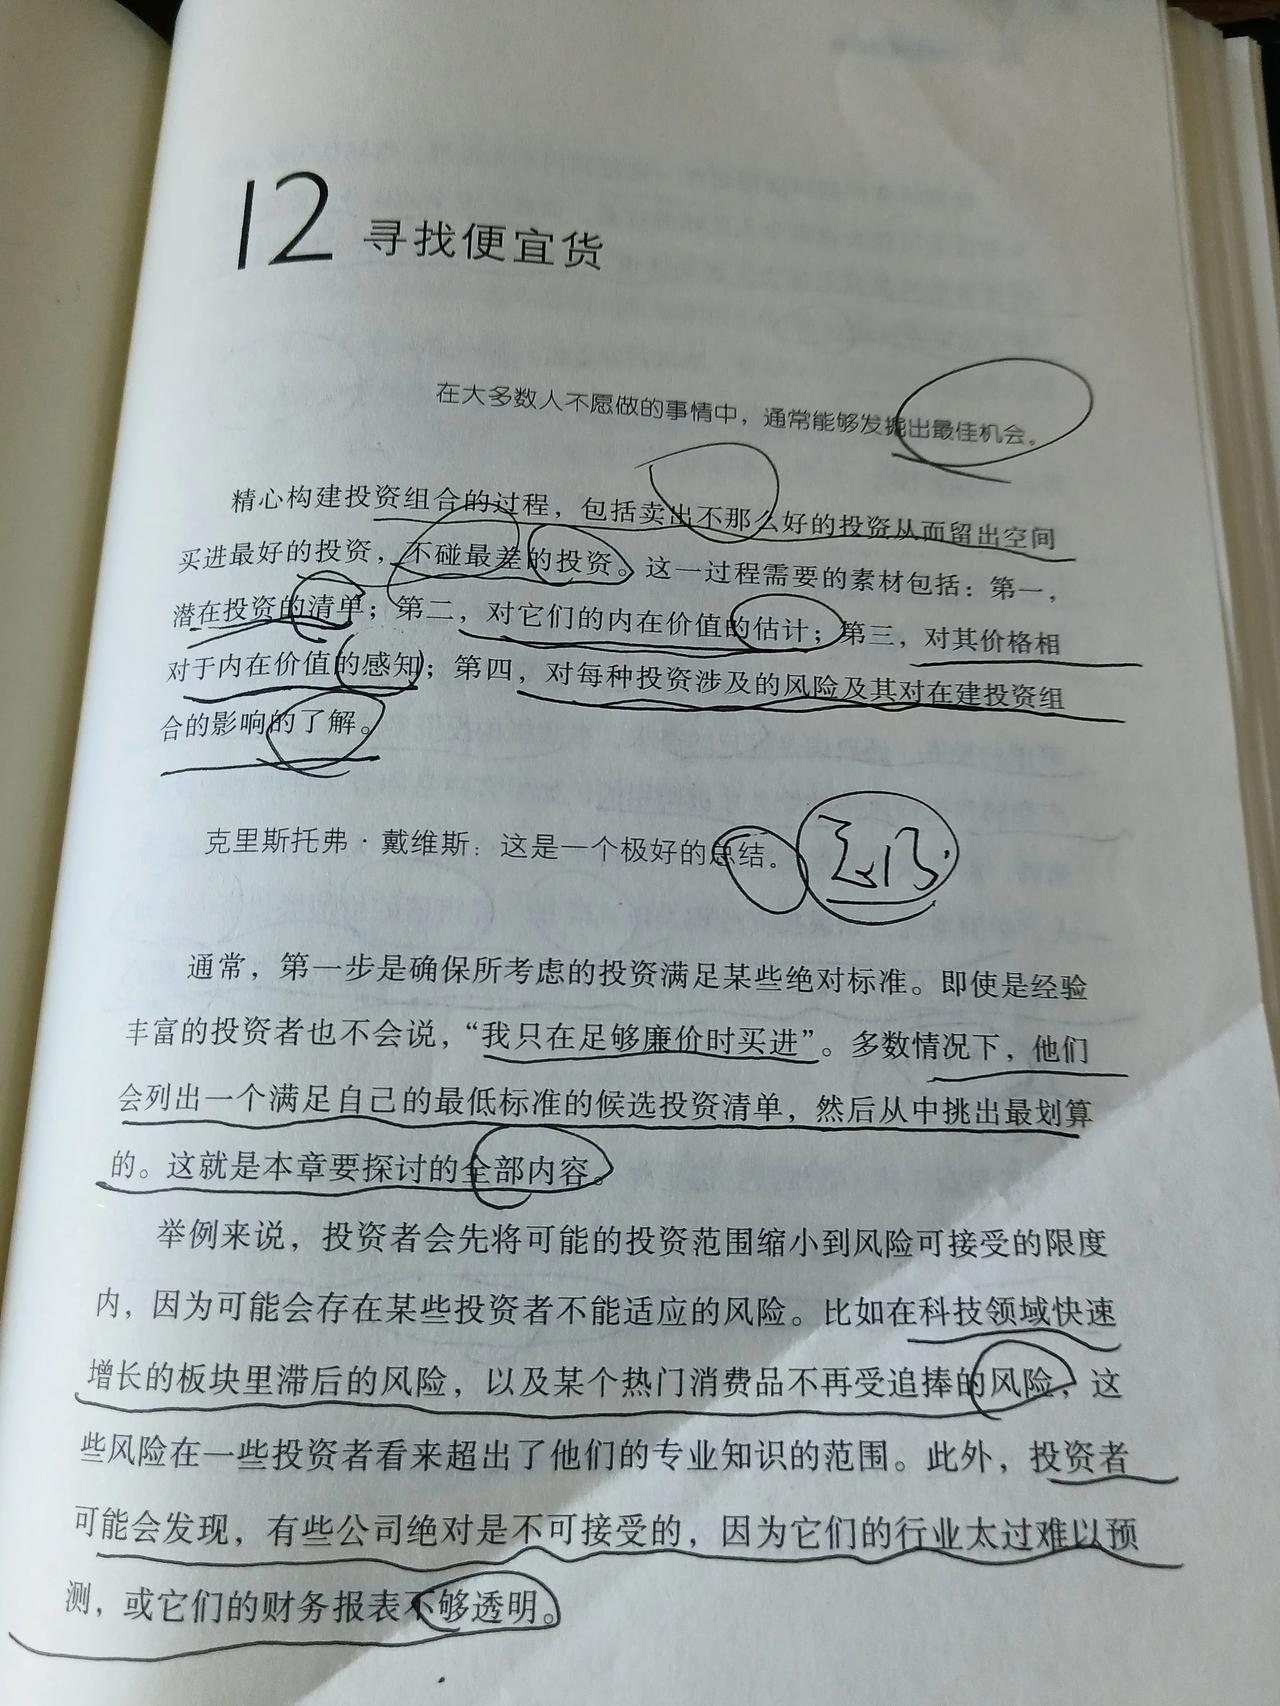 12 寻找便宜货
在大多数人不愿做的事情中，通常能够发掘出最佳机会。
精心构建投资组合的过程，包括卖出不那么好的投资从而留出空间
买进最好的投资，不碰最差的投资。这一过程需要的素材包括：第一，
潜在投资的清单；第二，对它们的内在价值的估计；第三，对其价格相
对于内在价值的感知；第四，对每种投资涉及的风险及其对在建投资组
合的影响的了解。
克里斯托弗·戴维斯：这是一个极好的总结。
通常，第一步是确保所考虑的投资满足某些绝对标准。即使是经验
丰富的投资者也不会说，“我只在足够廉价时买进”。多数情况下，他们
会列出一个满足自己的最低标准的候选投资清单，然后从中挑出最划算
的。这就是本章要探讨的全部内容。
举例来说，投资者会先将可能的投资范围缩小到风险可接受的限度
内，因为可能会存在某些投资者不能适应的风险。比如在科技领域快速
增长的板块里滞后的风险，以及某个热门消费品不再受追捧的风险，这
些风险在一些投资者看来超出了他们的专业知识的范围。此外，投资者
可能会发现，有些公司绝对是不可接受的，因为它们的行业太过难以预
测，或它们的财务报表不够透明。